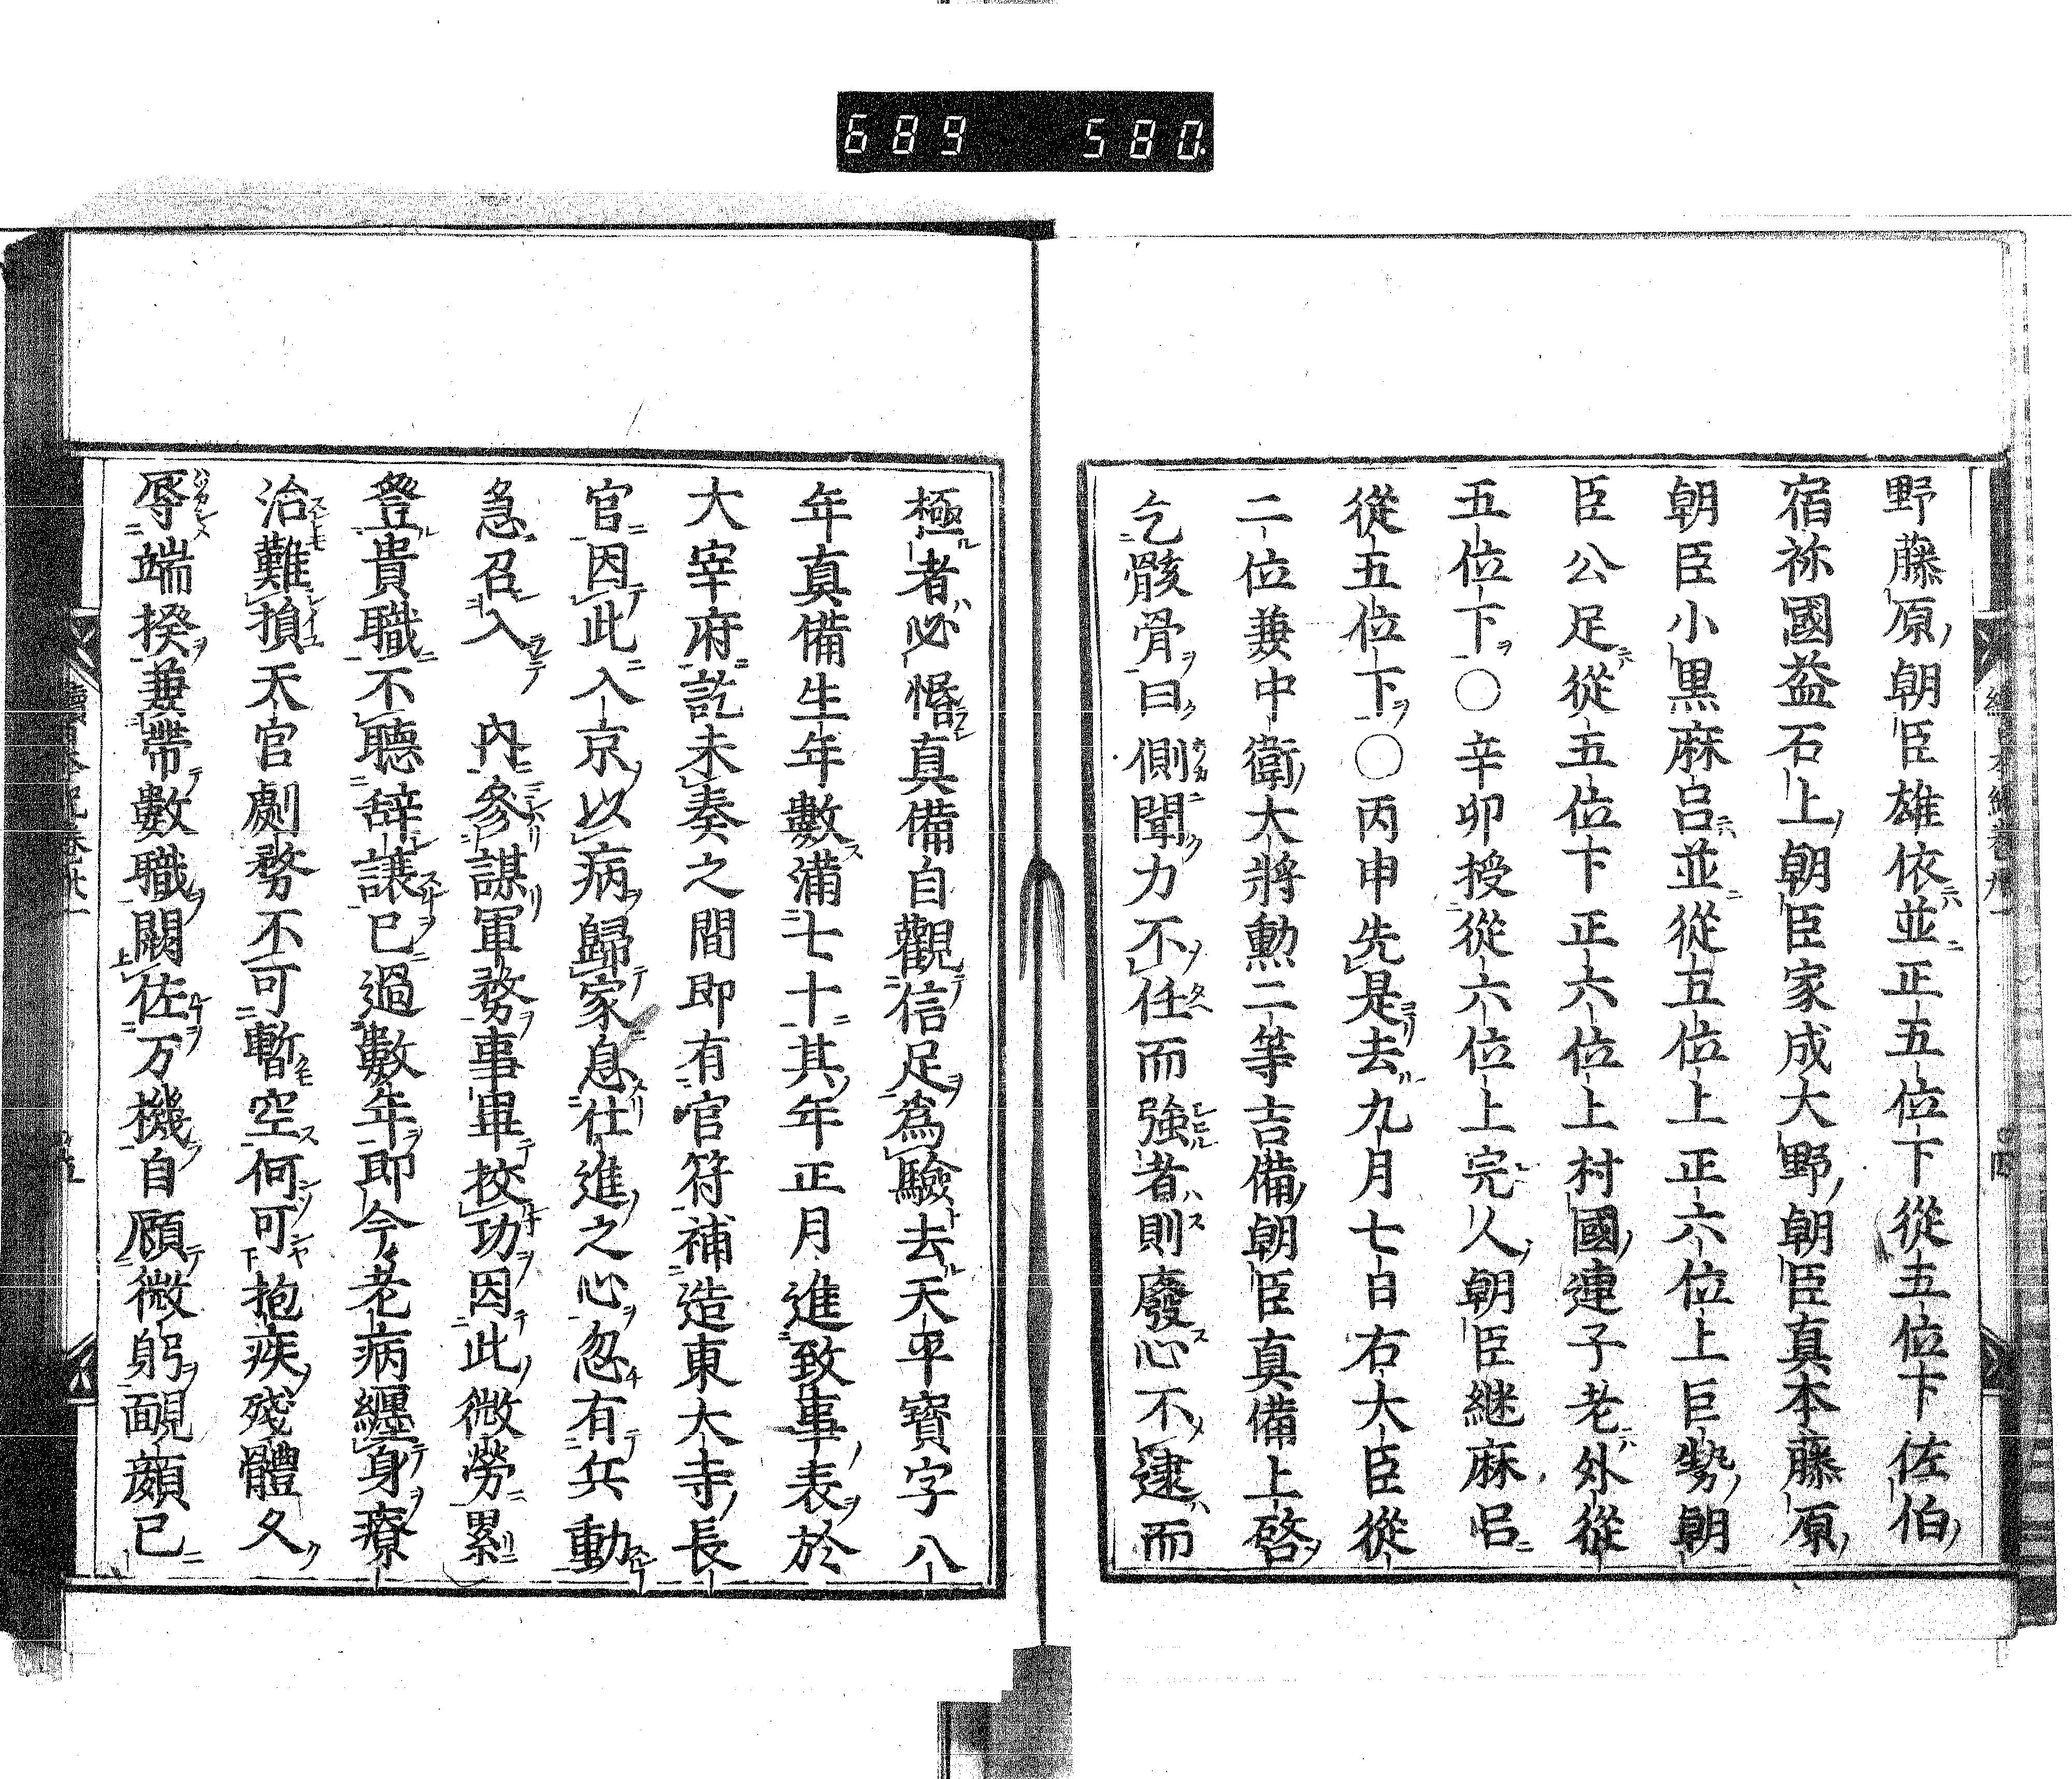 689 580.
野藤原朝臣雄依並正五位下從五位下佐伯
宿祢國益石上朝臣家成大野朝臣真本藤原
朝臣小黒麻呂並從五位上正六位上巨勢朝
臣公足從五位下正六位上村國連子老外從
五位下〇辛卯授從六位上完人朝臣継麻呂
從五位下〇丙申先是去九月七日右大臣從
二位兼中衛大將勲二等吉備朝臣真備上啓
乞骸骨曰側聞力不任而強者則廢心不逮而
極者必惛真備自觀信足為驗去天平寶字八
年真備生年數滿七十其年正月進致事表於
大宰府訖未奏之間即有官符補造東大寺長
官因此入京以病歸家息仕進之心忽有兵動
急召入 內參謀軍務事畢校功因此微勞累
登貴職不聽辞讓已過數年即今老病纏身療
治難損天官劇務不可暫空何可抱疾殘體久
辱端揆兼帶數職闕佐万機自顧微躬靦顏已